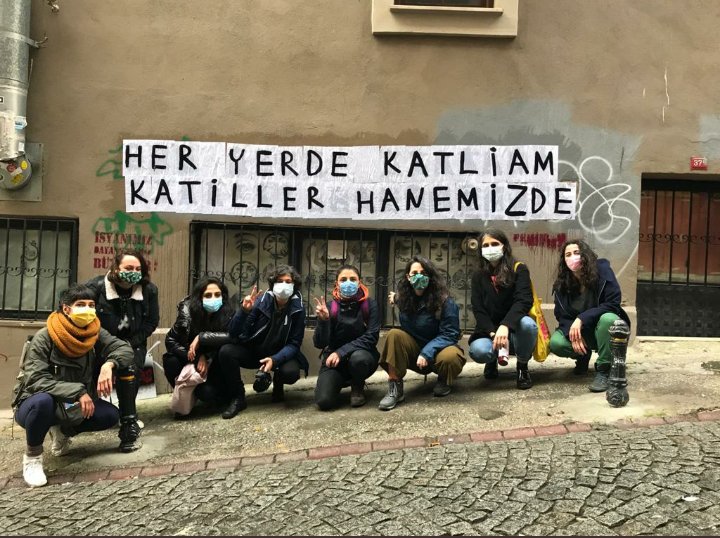 HER YERDE KATLİAM
KATİLLER HANEMİZDE
İSYAN
DAYAN
BÜ
37